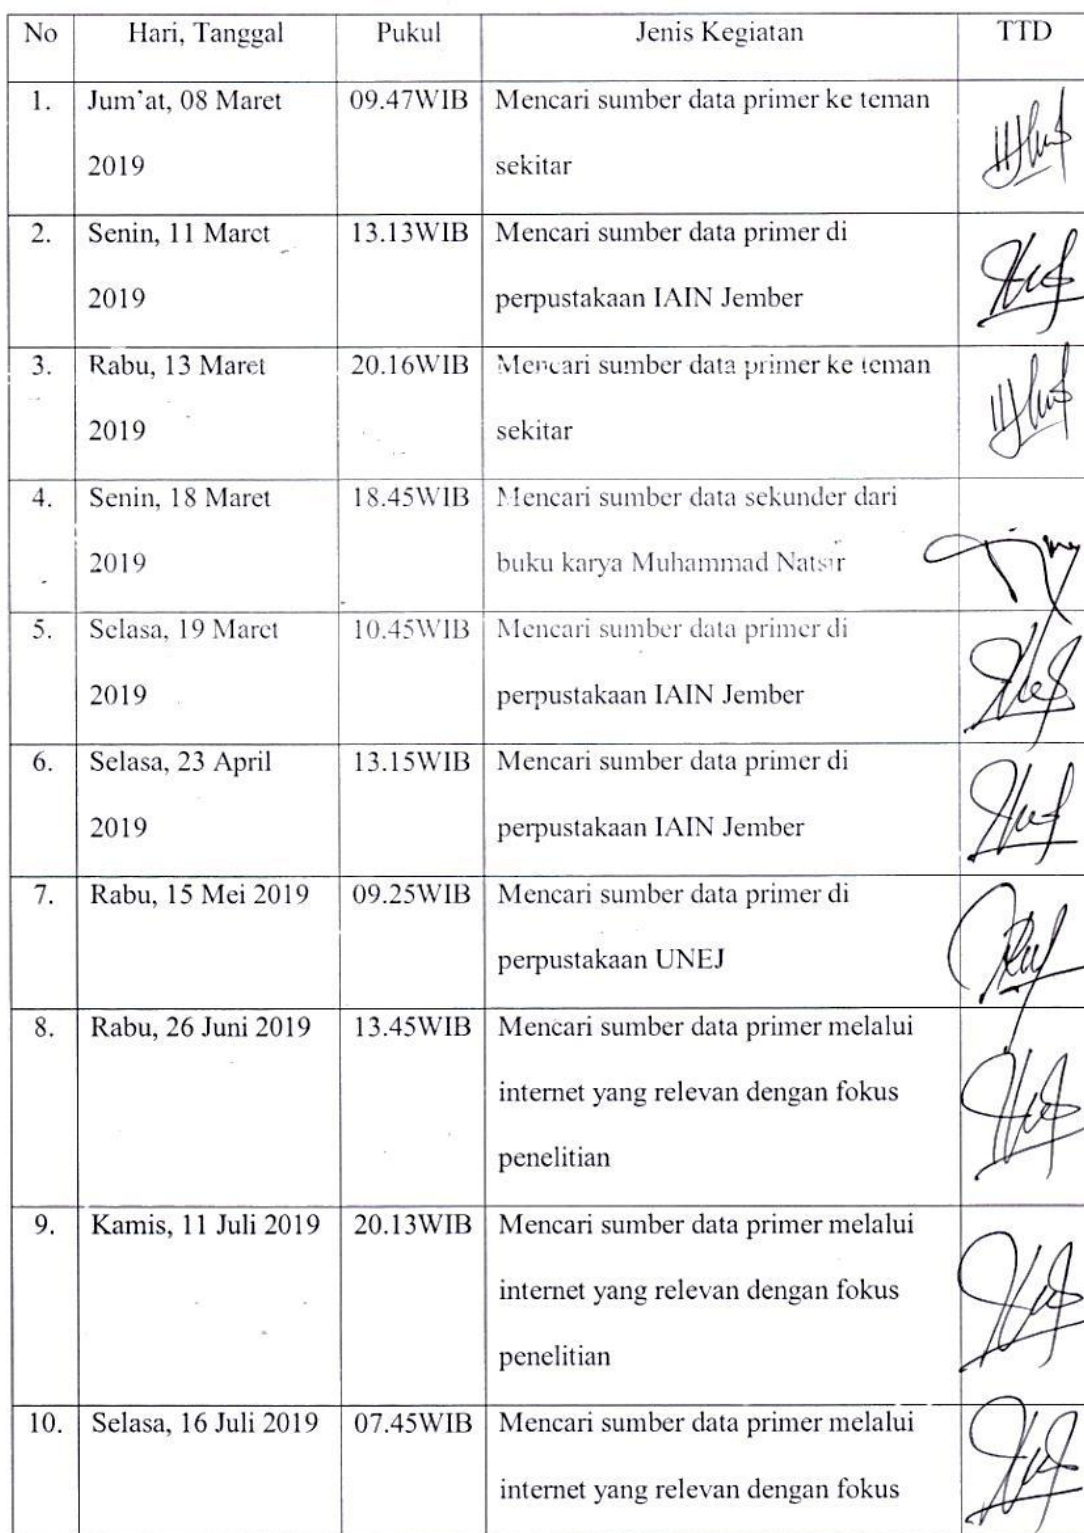 No Hari, Tanggal Pukul Jenis Kegiatan TTD
1. Jum'at, 08 Maret 09.47WIB Mencari sumber data primer ke teman
2019 sekitar
2. Senin, 11 Maret 13.13WIB Mencari sumber data primer di
2019 perpustakaan IAIN Jember
3. Rabu, 13 Maret 20.16WIB Mencari sumber data primer ke teman
2019 sekitar
4. Senin, 18 Maret 18.45WIB Mencari sumber data sekunder dari
2019 buku karya Muhammad Natsir
5. Selasa, 19 Maret 10.45WIB Mencari sumber data primer di
2019 perpustakaan IAIN Jember
6. Selasa, 23 April 13.15WIB Mencari sumber data primer di
2019 perpustakaan IAIN Jember
7. Rabu, 15 Mei 2019 09.25WIB Mencari sumber data primer di
perpustakaan UNEJ
8. Rabu, 26 Juni 2019 13.45WIB Mencari sumber data primer melalui
internet yang relevan dengan fokus
penelitian
9. Kamis, 11 Juli 2019 20.13WIB Mencari sumber data primer melalui
internet yang relevan dengan fokus
penelitian
10. Selasa, 16 Juli 2019 07.45WIB Mencari sumber data primer melalui
internet yang relevan dengan fokus